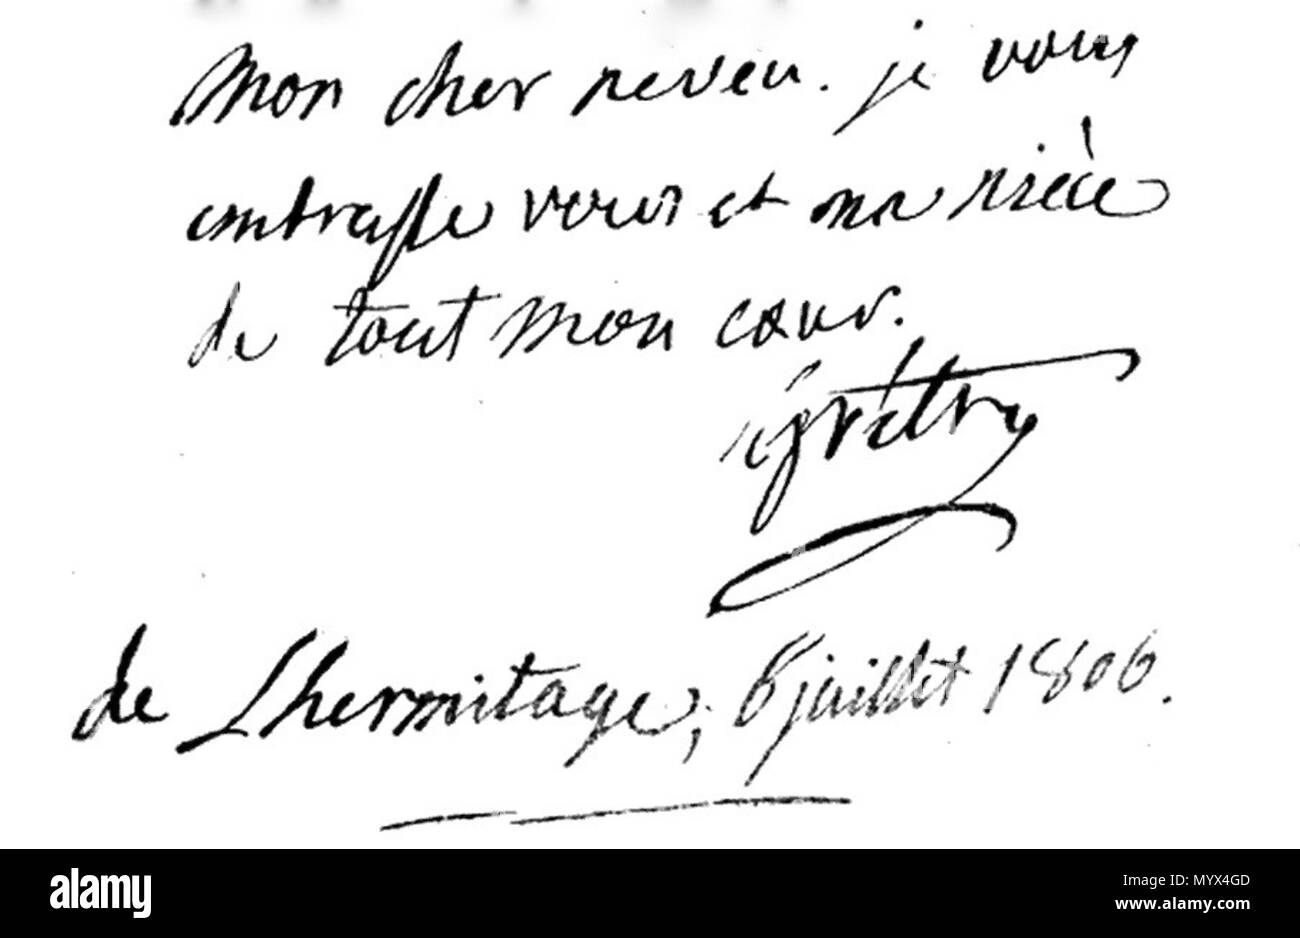 mon cher neveu. je vous
embrasse vous et ma nièce
de tout mon cœur.
grétry
de Lhermitage, 6 juillet 1806.
a
alamy
Image ID: MYX4GD
www.alamy.com